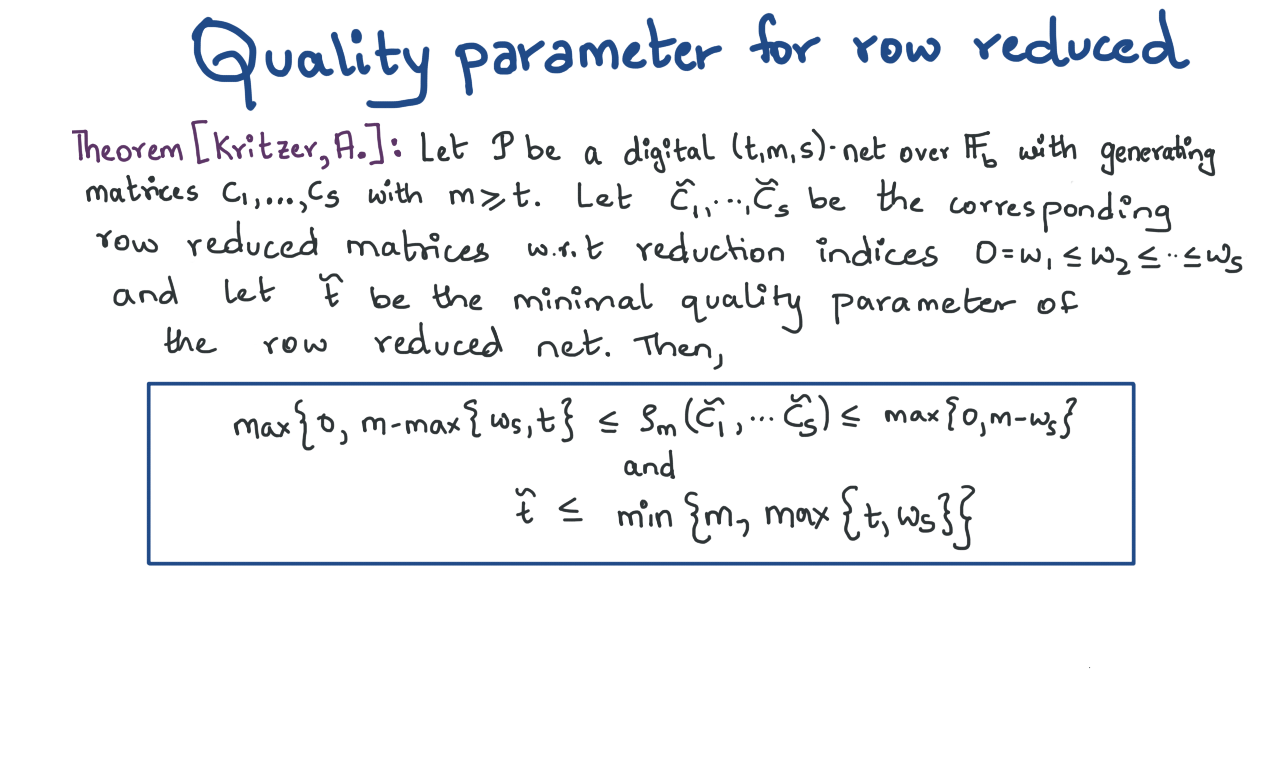 Quality parameter for row reduced
Theorem [Kritzer, A.]: Let P be a digital (t,m,s)-net over 𝔽_b with generating
matrices C₁,...,C_s with m ⩾ t. Let C̃₁,...,C̃_s be the corresponding
row reduced matrices w.r.t reduction indices 0=w₁ ≤ w₂ ≤ ... ≤ w_s
and let t̃ be the minimal quality parameter of
the row reduced net. Then,
max{0, m-max{w_s,t} ≤ ρ_m(C̃₁,...C̃_s) ≤ max{0,m-w_s}
and
t̃ ≤ min{m, max{t,w_s}}